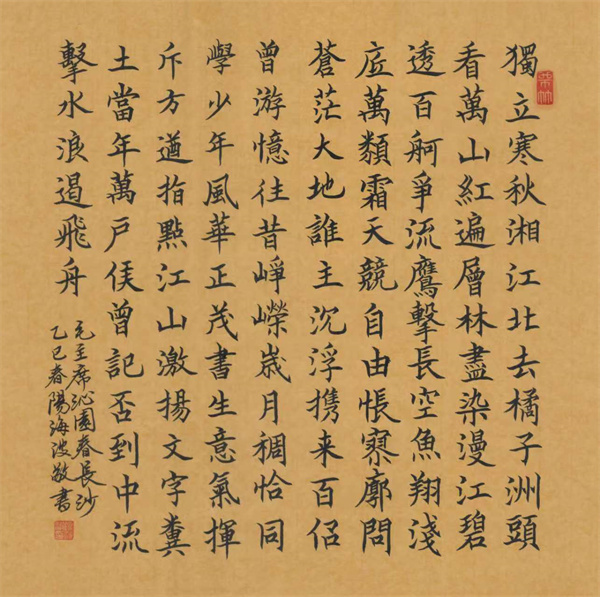 獨立寒秋湘江北去橘子洲頭
看萬山紅遍層林盡染漫江碧
透百舸爭流鷹擊長空魚翔淺
底萬類霜天競自由悵寥廓問
蒼茫大地誰主沉浮携来百侣
曾游憶往昔崢嶸歲月稠恰同
學少年風華正茂書生意氣揮
斥方遒指點江山激揚文字糞
土當年萬戶侯曾記否到中流
擊水浪遏飛舟
毛主席沁園春長沙
乙巳春陽海波敬書